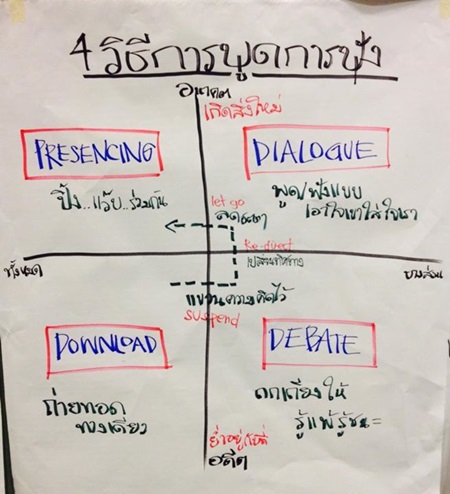 4 วิธีการพูดการฟัง
อนาคต
เกิดสิ่งใหม่
PRESENCING
DIALOGUE
ปิ๊ง..แว๊บ..ร่วมกัน
พูด/ฟังแบบ
เอาใจเขาใส่ใจเรา
let go
Re-direct
ทั้งหมด
บางส่วน
แขวนความคิดไว้
suspend
DOWNLOAD
DEBATE
ถ่ายทอด
ทางเดียว
ถกเถียงให้
รู้แพ้รู้ชนะ
ย่ำอยู่กับที่
อดีต